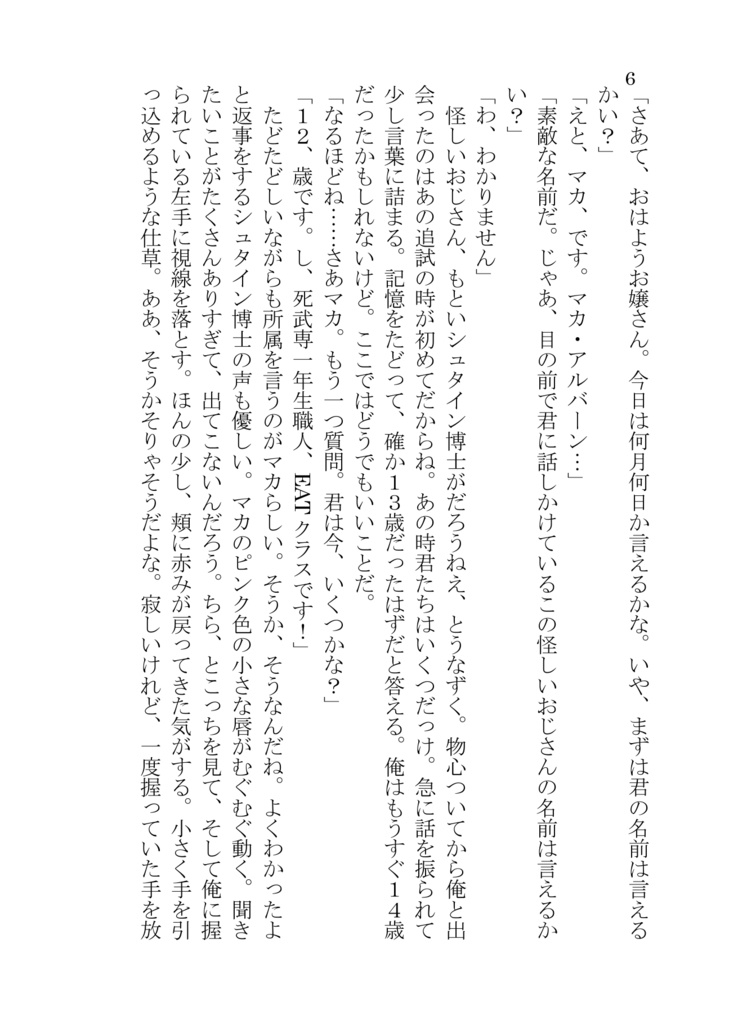 6
「さあて、おはようお嬢さん。今日は何月何日か言えるかな。いや、まずは君の名前は言える
かい？」
「えと、マカ、です。マカ・アルバーン…」
「素敵な名前だ。じゃあ、目の前で君に話しかけているこの怪しいおじさんの名前は言えるか
い？」
「わ、わかりません」
　怪しいおじさん、もといシュタイン博士がだろうねえ、とうなずく。物心ついてから俺と出
会ったのはあの追試の時が初めてだからね。あの時君たちはいくつだっけ。急に話を振られて
少し言葉に詰まる。記憶をたどって、確か１３歳だったはずだと答える。俺はもうすぐ１４歳
だったかもしれないけど。ここではどうでもいいことだ。
「なるほどね……さあマカ。もう一つ質問。君は今、いくつかな？」
「１２、歳です。し、死武専一年生職人、EATクラスです！」
　たどたどしいながらも所属を言うのがマカらしい。そうか、そうなんだね。よくわかったよ
と返事をするシュタイン博士の声も優しい。マカのピンク色の小さな唇がむぐむぐ動く。聞き
たいことがたくさんありすぎて、出てこないんだろう。ちら、とこっちを見て、そして俺に握
られている左手に視線を落とす。ほんの少し、頬に赤みが戻ってきた気がする。小さく手を引
っ込めるような仕草。ああ、そうかそりゃそうだよな。寂しいけれど、一度握っていた手を放